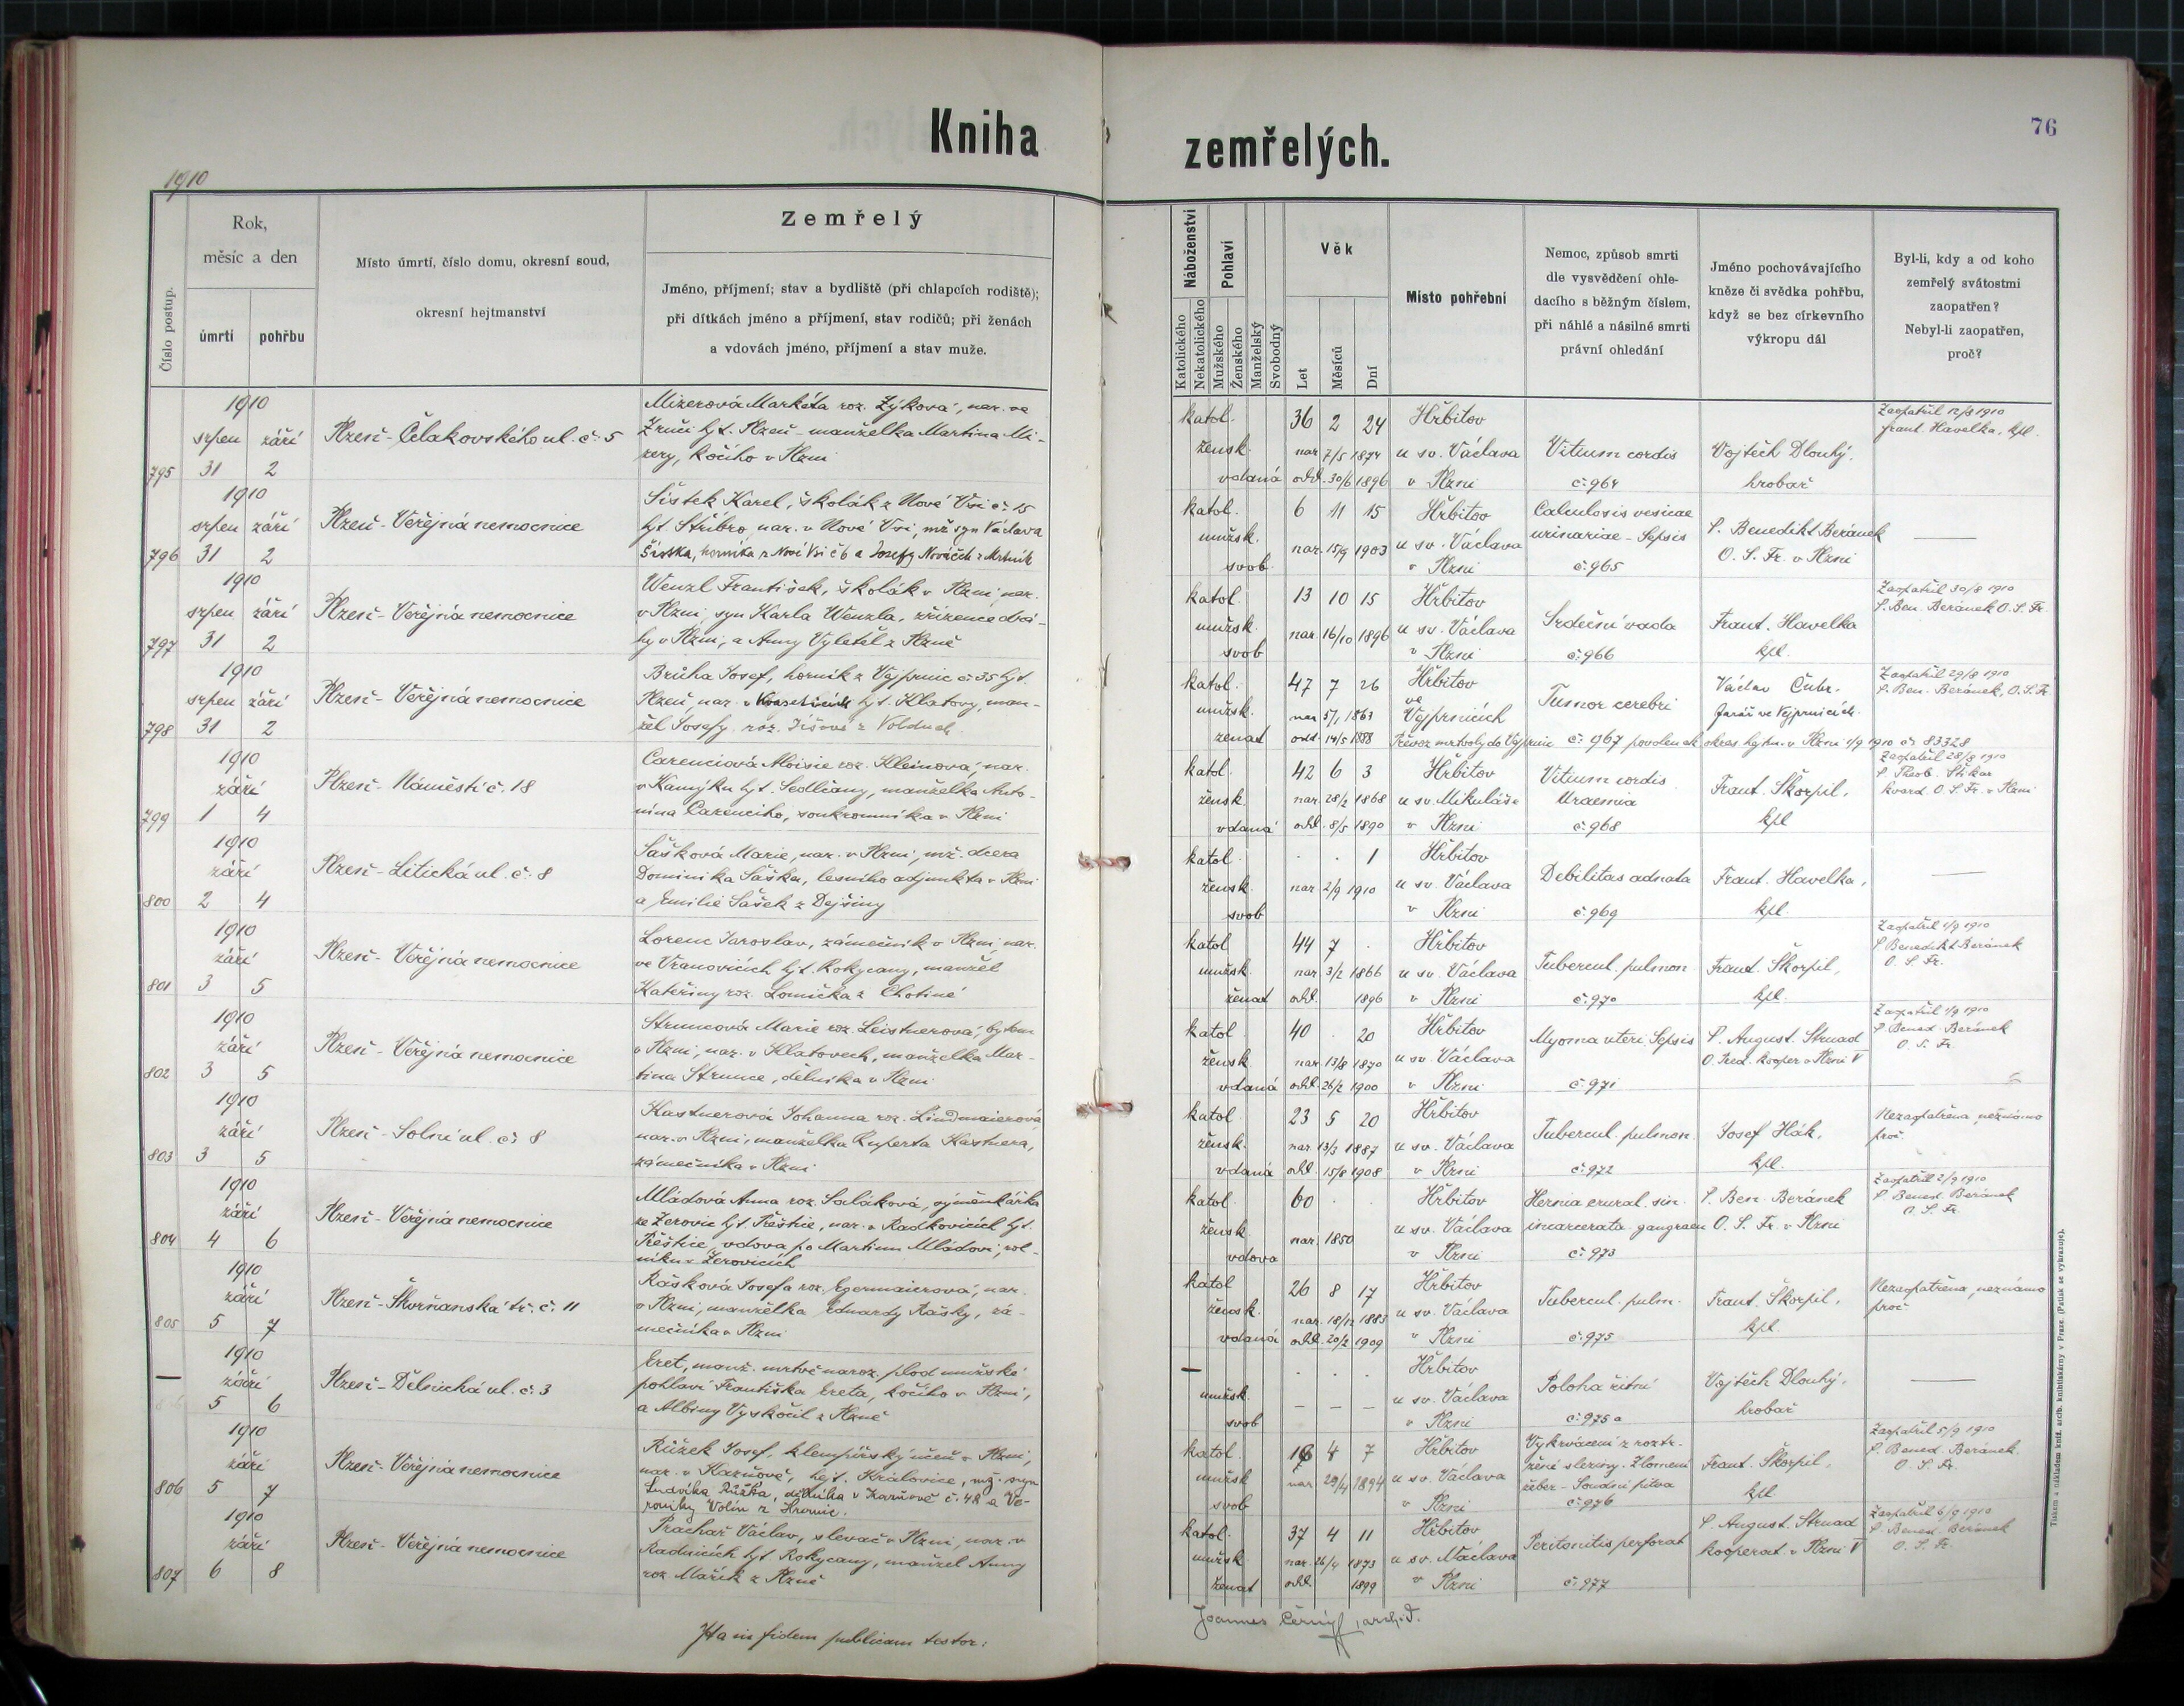 Kniha
zemřelých.
76
1910
Číslo postup.
Rok,
měsíc a den
úmrtí
pohřbu
Místo úmrtí, číslo domu, okresní soud,
okresní hejtmanství
Zemřelý
Jméno, příjmení; stav a bydliště (při chlapcích rodiště);
při dítkách jméno a příjmení, stav rodičů; při ženách
a vdovách jméno, příjmení a stav muže.
Náboženství
Katolického
Nekatolického
Pohlaví
Mužského
Ženského
Manželský
Svobodný
Věk
Let
Měsíců
Dní
Místo pohřební
Nemoc, způsob smrti
dle vysvědčení ohle-
dacího s běžným číslem,
při náhlé a násilné smrti
právní ohledání
Jméno pochovávajícího
kněze či svědka pohřbu,
když se bez církevního
výkropu dál
Byl-li, kdy a od koho
zemřelý svátostmi
zaopatřen?
Nebyl-li zaopatřen,
proč?
795
1910
srpen září
31 2
Plzeň - Čelakovského ul. č. 5
Mizerová Markéta roz. Zýková, nar. ve
Zruči hjt. Plzeň - manželka Martina Mi-
zery, kočího v Plzni
katol.
žensk.
vdaná
36 2 24
nar. 7/5 1874
odd. 30/6 1896
Hřbitov
u sv. Václava
v Plzni
Vitium cordis
č. 964
Vojtěch Dlouhý,
hrobař
Zaopatřil 12/8 1910
Frant. Havelka, kpl.
796
1910
srpen září
31 2
Plzeň - Veřejná nemocnice
Šístek Karel, školák z Nové Vsi č. 15
hjt. Stříbro, nar. v Nové Vsi, mž. syn Václava
Šístka, horníka z Nové Vsi č 6 a Josefy Nováček z Mrtník
katol.
mužsk.
svob.
6 11 15
nar. 15/9 1903
Hřbitov
u sv. Václava
v Plzni
Calculosis vesicae
urinariae - Sepsis
č. 965
P. Benedikt Beránek
O. S. Fr. v Plzni
797
1910
srpen září
31 2
Plzeň - Veřejná nemocnice
Wenzl František, školák v Plzni, nar.
v Plzni, syn Karla Wenzla, zřízence drá-
hy v Plzni, a Anny Vyletěl z Plzně
katol.
mužsk.
svob
13 10 15
nar. 16/10 1896
Hřbitov
u sv. Václava
v Plzni
Srdeční vada
č. 966
Frant. Havelka
kpl.
Zaopatřil 30/8 1910
P. Ben. Beránek O. S. Fr.
798
1910
srpen září
31 2
Plzeň - Veřejná nemocnice
Brůha Josef, horník z Vejprnic č. 35 hjt.
Plzeň, nar. v hjt. Klatovy, man-
žel Josefy roz. z Volduch
katol.
mužsk.
ženat
47 7 26
nar. 5/1 1863
odd. 14/5 1888
Hřbitov
ve
Vejprnicích
Převoz mrtvoly do Vejprnic č. 967 povolen ok. okres. hejtm. v Plzni 1/9 1910 č. 83328
Tumor cerebri
Václav Čubr,
farář ve Vejprnicích.
Zaopatřil 29/8 1910
P. Ben. Beránek, O. S. Fr.
799
1910
září
1 4
Plzeň - Náměstí č. 18
Carenciová Aloisie roz. Kleinová, nar.
v Kamýku hjt. Sedlčany, manželka Anto-
nína Carenciho, soukromníka v Plzni
katol.
žensk.
vdaná
42 6 3
nar. 28/2 1868
odd. 8/5 1890
Hřbitov
u sv. Mikuláše
v Plzni
Vitium cordis
Uraemia
č. 968
Frant. Škorpil,
kpl
Zaopatřil 28/8 1910
P. Theob.
kvard. O. S. Fr. v Plzni
800
1910
září
2 4
Plzeň - Litická ul. č. 8
Šašková Marie, nar. v Plzni, mž. dcera
Dominika Šaška, lesního adjunkta v Plzni
a Emilie Šašek z Dejšiny
katol.
žensk.
svob
. . 1
nar. 2/9 1910
Hřbitov
u sv. Václava
v Plzni
Debilitas adnata
č. 969
Frant. Havelka,
kpl.
801
1910
září
3 5
Plzeň - Veřejná nemocnice
Lorenc Jaroslav, zámečník v Plzni, nar.
ve Vranovicích hjt. Rokycany, manžel
Kateřiny roz. Lomička z Chotiné
katol
mužsk.
ženat
44 7 .
nar 3/2 1866
odd. 1896
Hřbitov
u sv. Václava
v Plzni
Tubercul. pulmon.
č. 970
Frant. Škorpil,
kpl.
Zaopatřil 1/9 1910
P. Benedikt Beránek
O. S. Fr.
802
1910
září
3 5
Plzeň - Veřejná nemocnice
Struncová Marie roz. Leistnerová, bytem
v Plzni, nar. v Klatovech, manželka Mar-
tina Strunce, dělníka v Plzni
katol.
žensk.
vdaná
40 . 20
nar. 13/8 1870
odd. 26/2 1900
Hřbitov
u sv. Václava
v Plzni
Myoma uteri, Sepsis
č. 971
P. August. Strnad
O. Pred. kooper v Plzni V
Zaopatřil 1/9 1910
P. Bened. Beránek
O. S. Fr.
803
1910
září
3 5
Plzeň - Solní ul. č. 8
Kastnerová Johanna roz. Lindmaierová,
nar. v Plzni, manželka Ruperta Kastnera,
zámečníka v Plzni
katol
žensk.
vdaná
23 5 20
nar. 13/3 1887
odd. 15/8 1908
Hřbitov
u sv. Václava
v Plzni
Tubercul. pulmon.
č. 972
Josef Hák,
kpl.
Nezaopatřena, neznámo
proč.
804
1910
září
4 6
Plzeň - Veřejná nemocnice
Mládová Anna roz. Saláková, výměnkářka
ze Žerovic hjt. Přeštice, nar. v Radkovicích hjt.
Přeštice, vdova po Martinu Mládovi, rol-
níku v Žerovicích
katol.
žensk.
vdova
60 .
nar. 1850
Hřbitov
u sv. Václava
v Plzni
Hernia crural. sin.
incarcerata gangraen
č. 973
P. Ben. Beránek
O. S. Fr. v Plzni
Zaopatřil 2/9 1910
P. Bened. Beránek
O. S. Fr.
805
1910
září
5 7
Plzeň - Skvrňanská tř. č. 11
Rašková Josefa roz. Egermaierová, nar.
v Plzni, manželka Eduarda Rašky, zá-
mečníka v Plzni
katol
žensk.
vdaná
26 8 17
nar. 18/12 1883
odd. 20/2 1909
Hřbitov
u sv. Václava
v Plzni
Tubercul. pulm.
č. 975
Frant. Škorpil,
kpl.
Nezaopatřena, neznámo
proč
—
1910
září
5 6
Plzeň - Dělnická ul. č. 3
Eret, manž. mrtvě naroz. plod mužské
pohlaví Františka Ereta, kočího v Plzni,
a Albiny Vyskočil z Plzně
—
mužsk.
svob
Hřbitov
u sv. Václava
v Plzni
Poloha řitní
č. 975a
Vojtěch Dlouhý,
hrobař
806
1910
září
5 7
Plzeň - Veřejná nemocnice
Růžek Josef, klempířský učeň v Plzni,
nar. v Kaznově, hejt. Královice, mž. syn
Ludvíka Růžka, dělníka v Kaznově č. 48 a Ve-
roniky Volín z Hromic.
katol.
mužsk
svob
16 4 7
nar 29/4 1894
Hřbitov
u sv. Václava
v Plzni
Vykrvácení z roztr-
žené sleziny. Zlomení
žeber - Soudní pitva
č. 976
Frant. Škorpil,
kpl
Zaopatřil 5/9 1910
P. Bened. Beránek.
O. S. Fr.
807
1910
září
6 8
Plzeň - Veřejná nemocnice
Prachař Václav, slevač v Plzni, nar. v
Radnicích hjt. Rokycany, manžel Anny
roz. Mařík z Plzně
katol.
mužsk.
ženat
37 4 11
nar. 26/4 1873
odd. 1899
Hřbitov
u sv. Václava
v Plzni
Peritonitis perforat
č. 977
P. August. Strnad
kooperat. v Plzni V
Zaopatřil 6/9 1910
P. Bened. Beránek
O. S. Fr.
Ita in fidem publicam testor:
Joannes Černý, arch.d.
Tiskem a nákladem kníž. arcib. knihtiskárny v Praze. (Patisk se vyhrazuje).